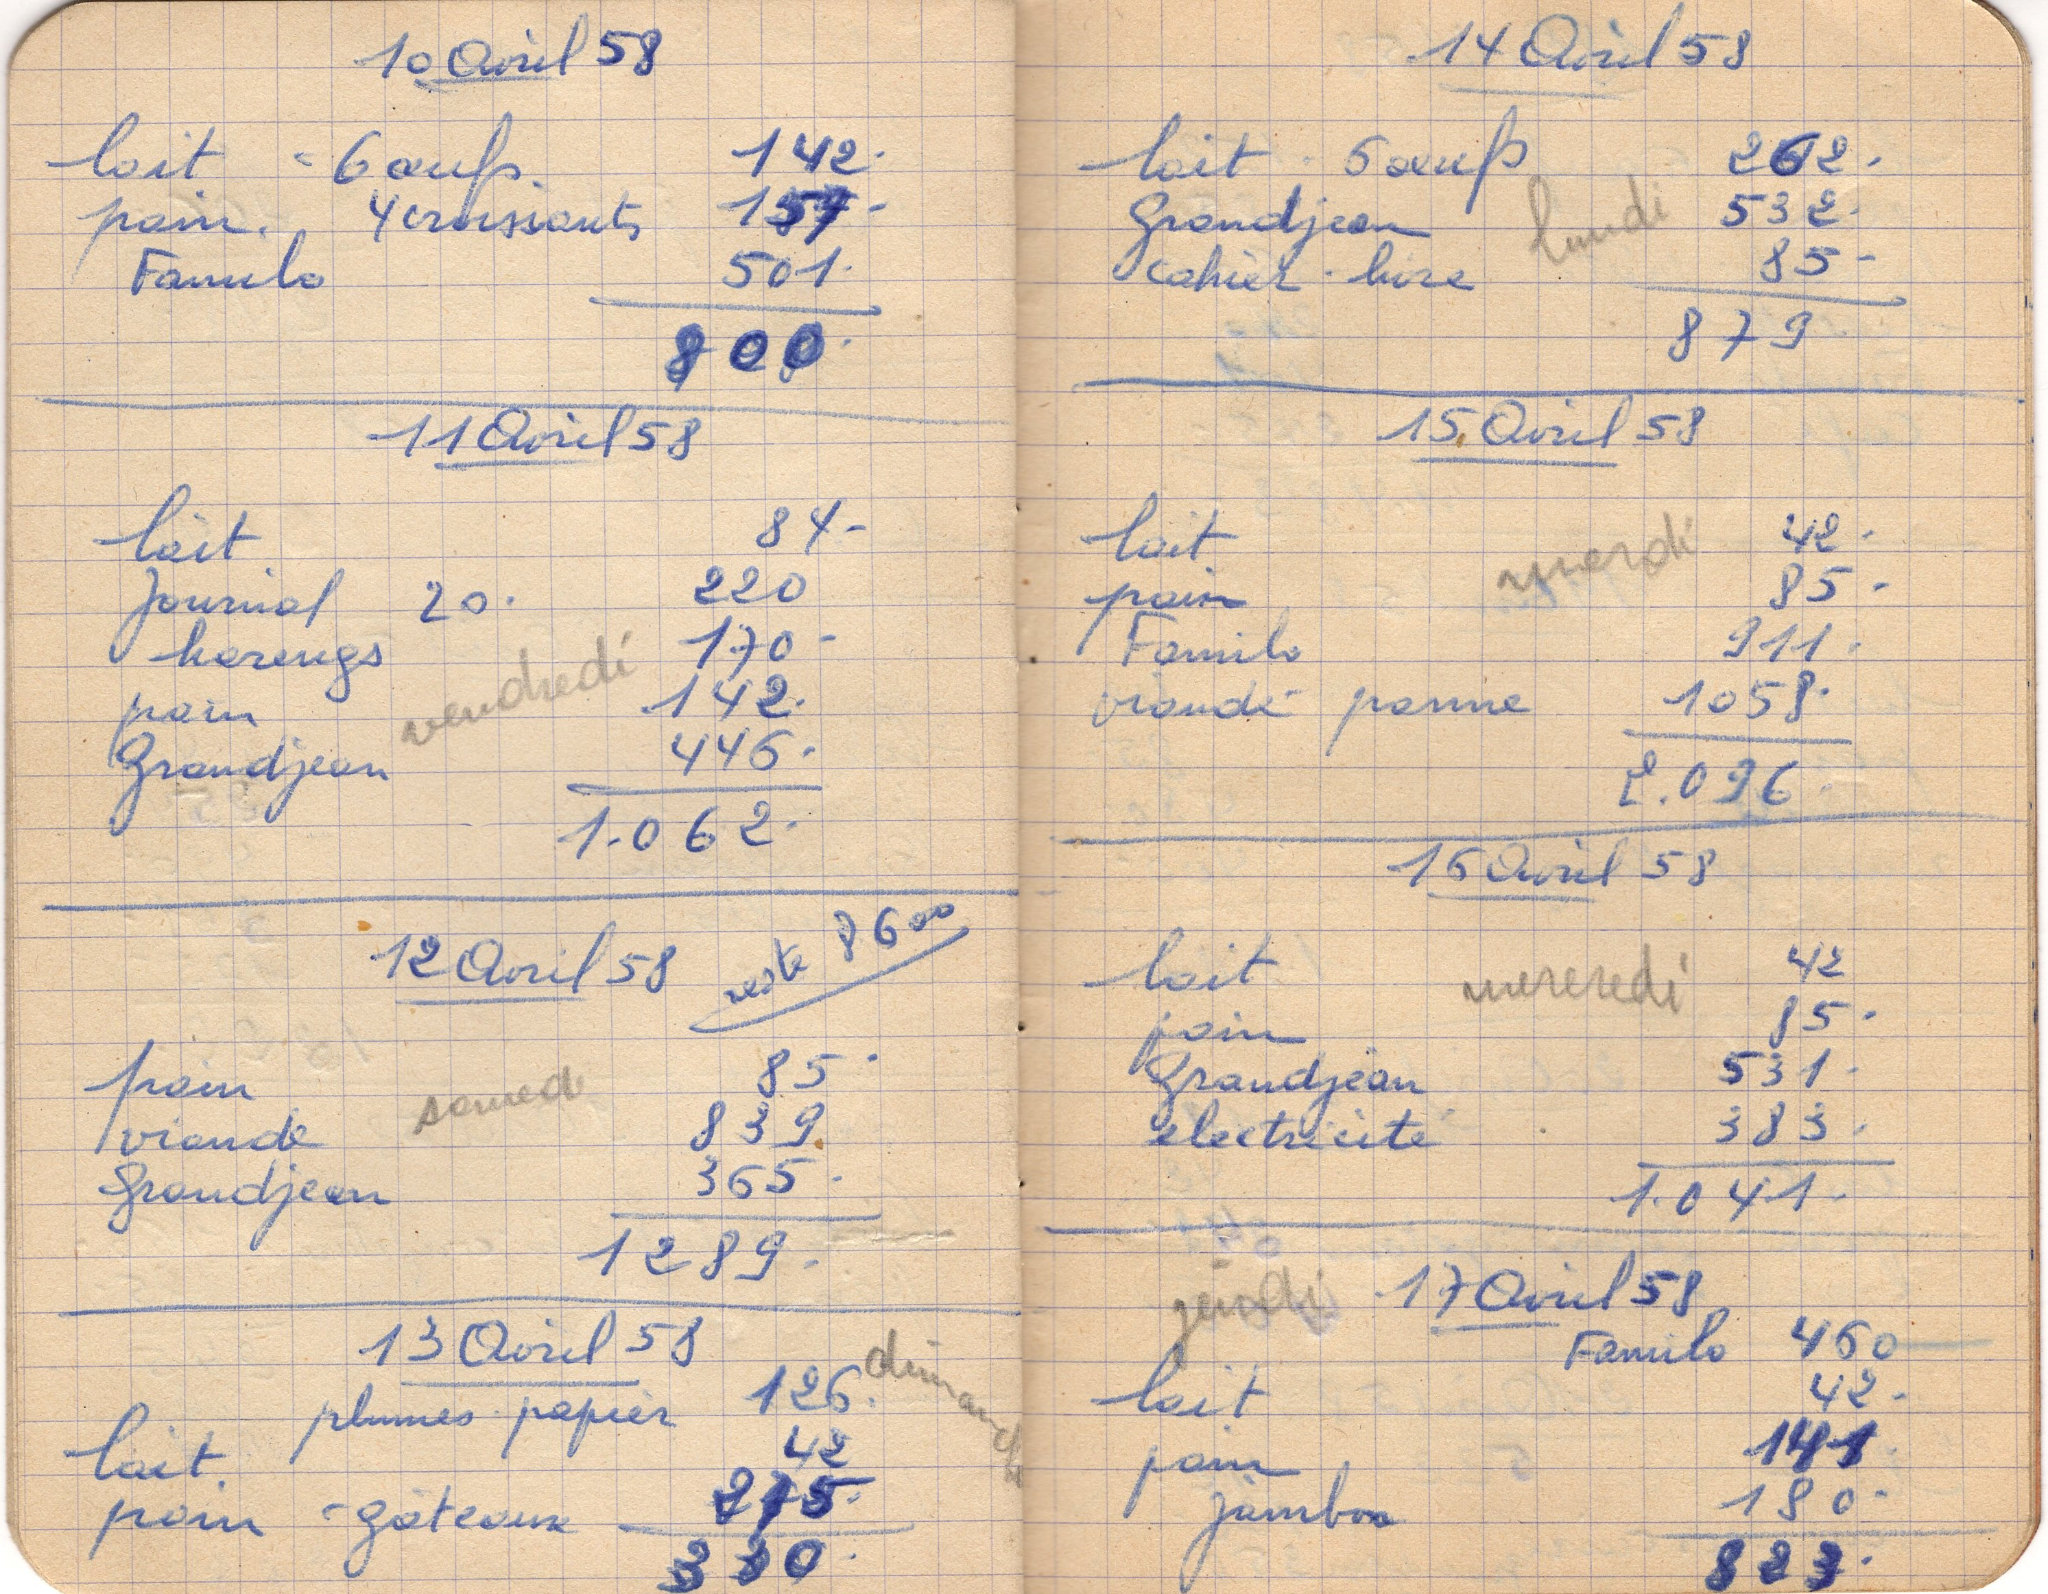 10 Avril 58
lait - 6 œufs. 142.
pain. 4 croissants 157-
Familo 501.
800.
11 Avril 58
lait 84-
Journal 20. 220
harengs 170-
pain 142.
Grandjean 446.
vendredi
1.062.
12 Avril 58
reste 8600
pain 85.
viande 839
Grandjean 365.
samedi
1289.
13 Avril 58
dimanche
plumes. papier 126.
lait. 42
pain - gâteaux
330.
14 Avril 58
lait. 6 œufs 262.
Grandjean 532.
cahier. livre 85-
lundi
879
15 Avril 58
lait 42.
pain 85-
Familo 911.
viande panne 1058.
mardi
2.096.
16 Avril 58
lait 42
pain 85.
Grandjean 531.
electricité 383.
mercredi
1.041.
jeudi
17 Avril 58
Familo 460
lait 42.
pain 141.
jambon 180.
823.